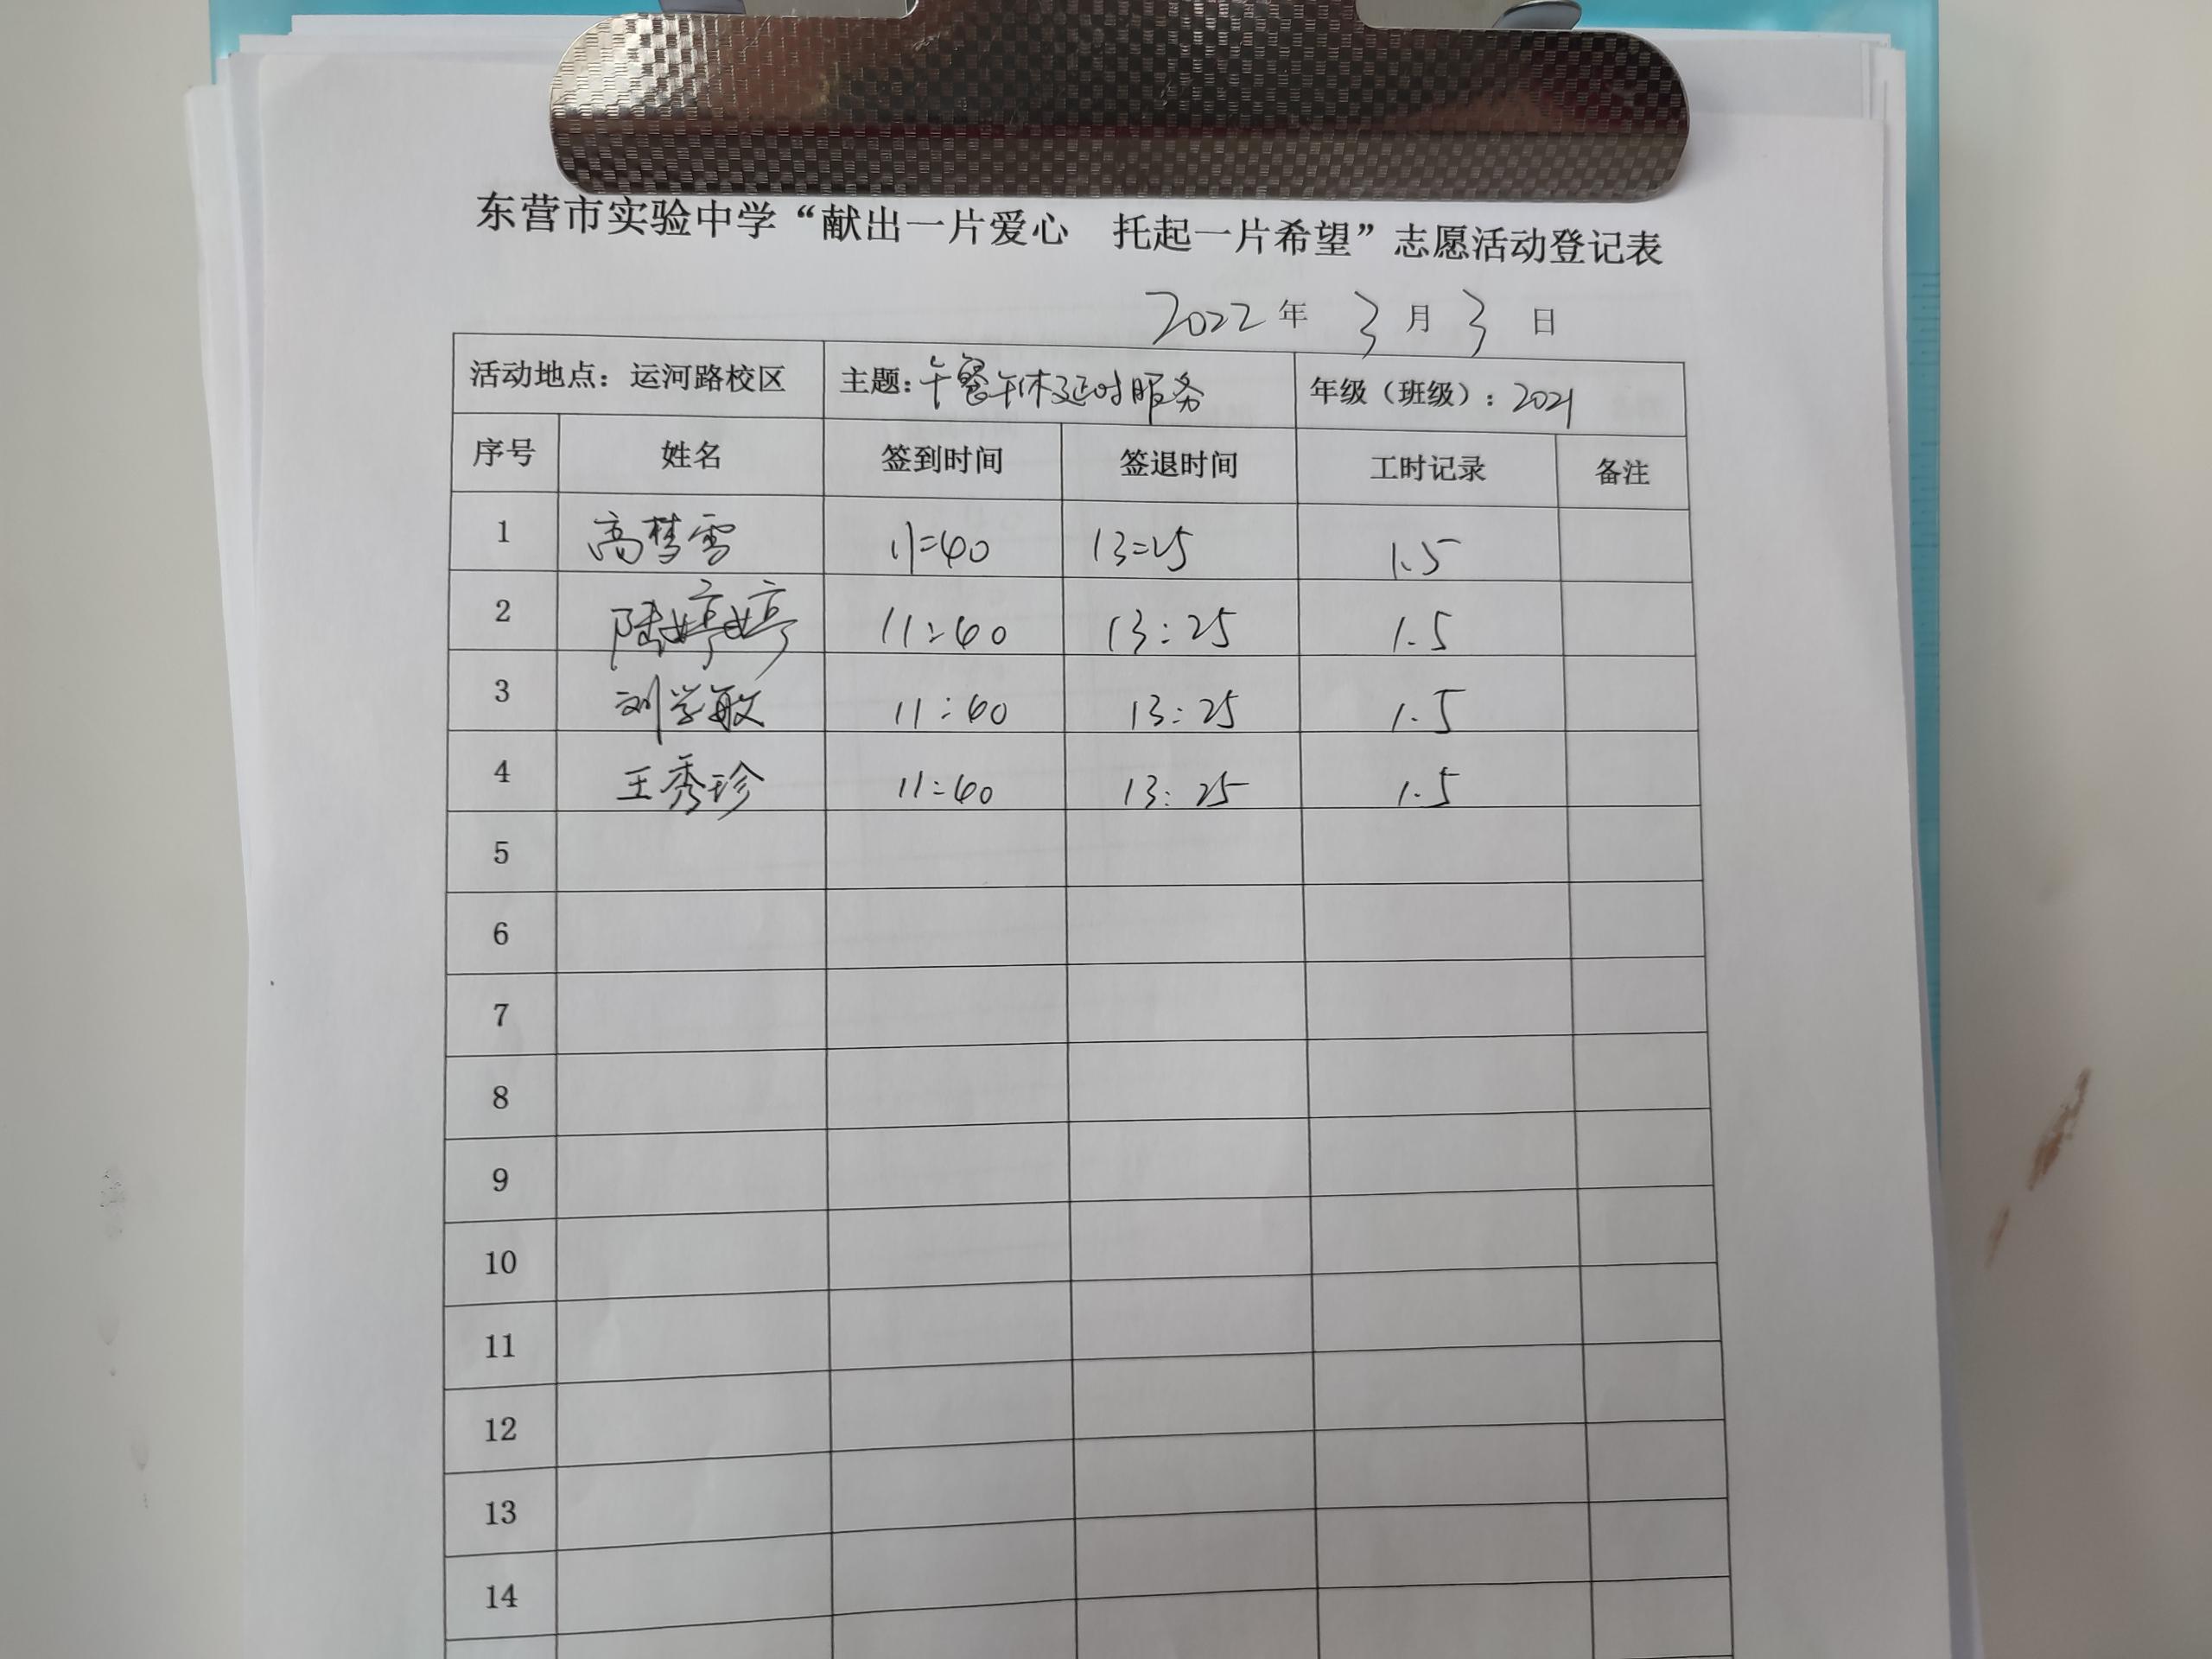 东营市实验中学“献出一片爱心 托起一片希望”志愿活动登记表
2022年 3月3日
活动地点：运河路校区 主题：午餐午休延时服务 年级（班级）：2021
序号 姓名 签到时间 签退时间 工时记录 备注
1 高梦雪 11:40 13:25 1.5
2 陆婷婷 11:40 13:25 1.5
3 刘学敏 11:40 13:25 1.5
4 王秀珍 11:40 13:25 1.5
5
6
7
8
9
10
11
12
13
14